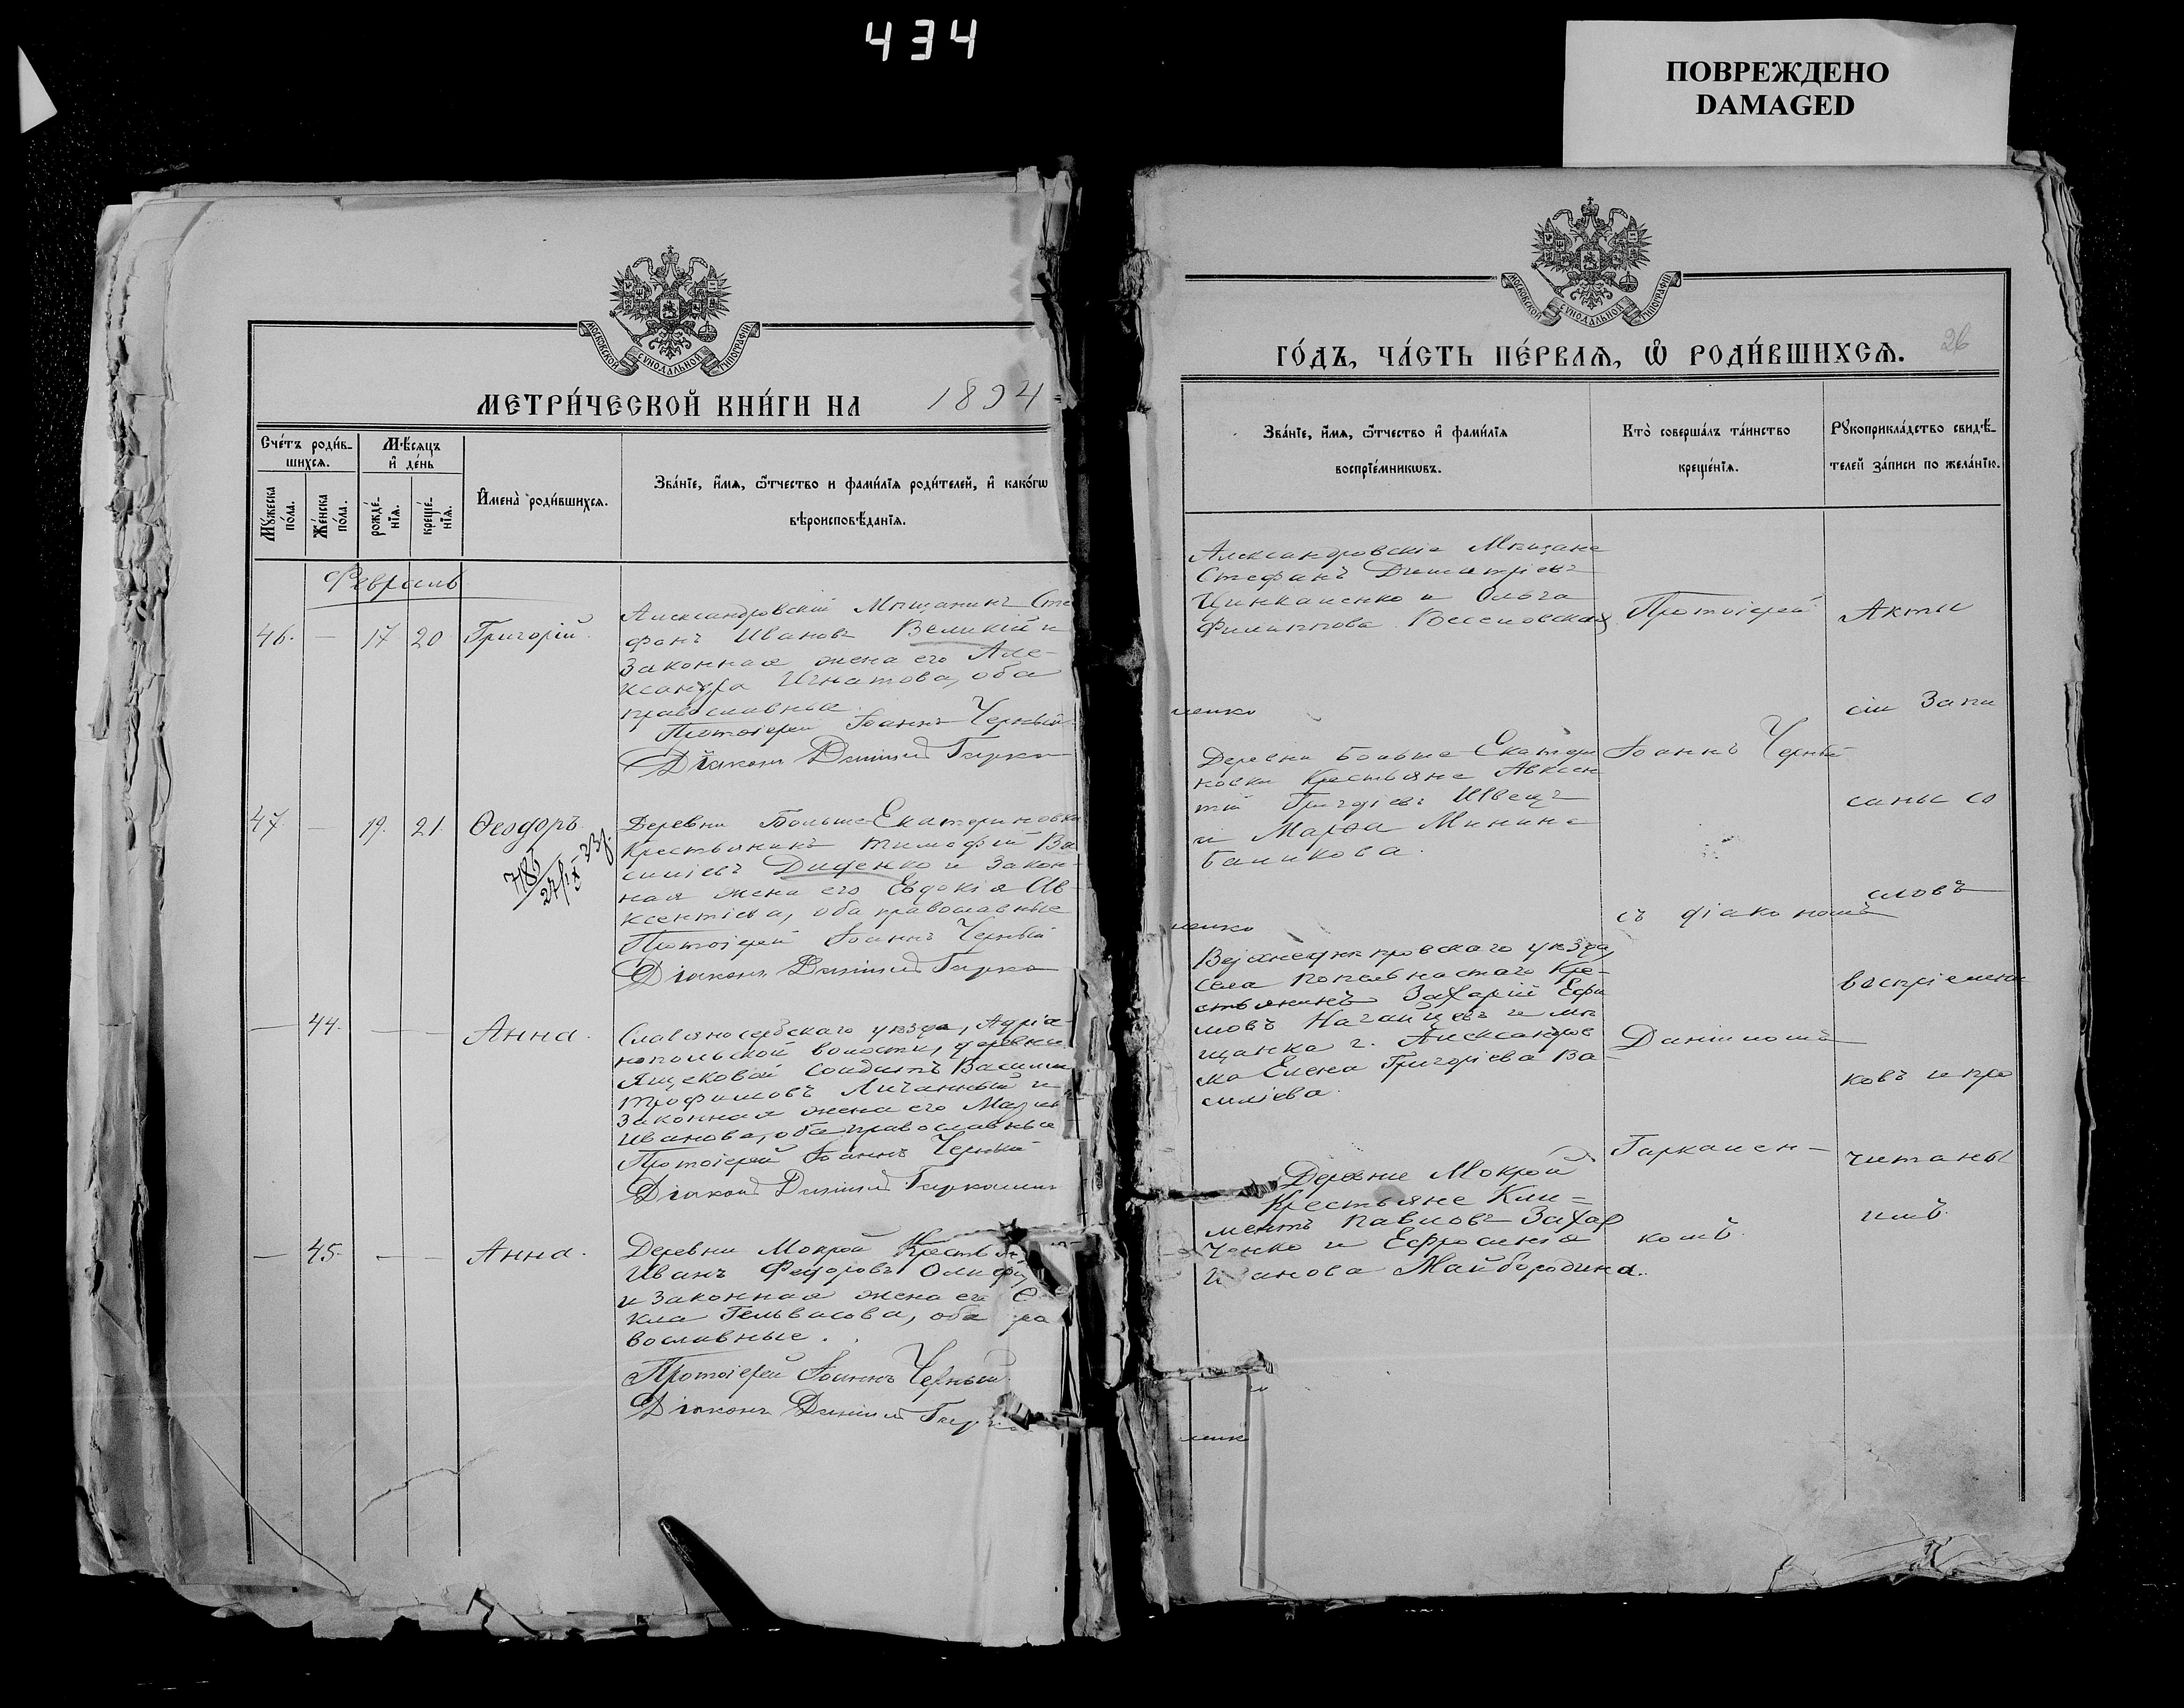 434
ПОВРЕЖДЕНО
DAMAGED
МОСКОВСКОЙ СѴНОДАЛЬНОЙ ТИПОГРАФІИ
МЕТРИ́ЧЕСКОЙ КНИ́ГИ НА 1894
Сче́тъ роди́в-
шихсѧ.
Мѣ́сѧцъ
и҆ де́нь
Мꙋ́жеска
по́ла.
Же́нска
по́ла.
рожде́-
нїѧ.
креще́-
нїѧ.
И҆мена̀ роди́вшихсѧ.
Зва́нїе, и҆́мѧ, ѻ҆́тчество и фами́лїѧ роди́телей, и҆ како́гѡ
вѣроисповѣ́данїѧ.
Февраль
46. — 17 20 Григорій.
Александровскій Мѣщанинъ Сте
фанъ Ивановъ Великій и
законная жена его Але-
ксандра Игнатова, оба
православные.
Протоіерей Іоаннъ Черный
Діаконъ Даніилъ Гарка
47. — 19. 21. Ѳеодоръ.
Деревни Больше Екатериновки
Крестьянинъ Тимофій Ва
силіевъ Диденко и закон-
ная жена его Евдокія Ав-
ксентіева, оба православные
Протоіерей Іоаннъ Черный
Діаконъ Даніилъ Гарка
— 44. — — Анна.
Славяносербскаго уѣзда, Адріа-
нопольской волости, деревни
Ящековой Солдатъ Василій
Трофимовъ Личанный и
законная жена его Марія
Иванова, оба православные
Протоіерей Іоаннъ Черный
Діаконъ Даніилъ Гаркалин
— 45. — — Анна.
Деревни Мокрой Крестья
Иванъ Федоровъ
и законная жена его
кла Гельвасова, оба
вославные.
Протоіерей Іоаннъ Черный
Діаконъ Даніилъ Гарк
МОСКОВСКОЙ СѴНОДАЛЬНОЙ ТИПОГРАФІИ
ГО́ДЪ, ЧА́СТЬ ПЕ́РВАѦ, Ѽ РОДИ́ВШИХСѦ. 26
Зва́нїе, и҆́мѧ, ѻ҆́тчество и҆ фами́лїѧ
воспрїе́мникѡвъ.
Кто̀ соверша́лъ та́инство
креще́нїѧ.
Рꙋкоприкла́дство свидѣ́-
телей за́писи по жела́нїю.
Александровскіе Мѣщане
Стефанъ Димитріевъ
Цинкаленко и Ольга
Филиппова Веселовская
ленко
Деревни Больше-Екатери
новки Крестьяне Авксен
тій Григоріевъ Швецъ
и Марфа Минина
Баликова.
ленко
Верхнеднѣпровскаго уѣзда,
села Попельнастаго Кре-
стьянинъ Захарій Ефи
мовъ Нагайцевъ и мѣ
щанка г. Александров
ска Елена Григоріева Ва-
силіева.
Деревни Мокрой
Крестьяне Кли-
ментъ Павловъ Захар
ченко и Ефросинія
Иванова Майбородина.
Протоіерей
Іоаннъ Черный
съ діакономъ
Даніиломъ
Гаркален-
комъ.
Акты
сіи запи
саны со
словъ
воспріемни
ковъ и про
читаны
имъ.